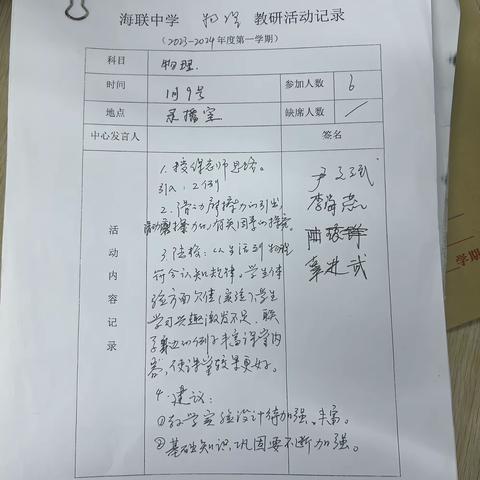 海联中学 物理 教研活动记录
（2023-2024年度第一学期）
科目 物理.
时间 1月9号 参加人数 6
地点 录播室 缺席人数 /
中心发言人 签名
活动内容记录
1. 授课老师思路.
引入: 2例
2. 滑动摩擦力的引出,
滑动摩擦力的有关因素的探究.
3. 从生活到物理
符合认知规律。学生体
验方面欠佳(实验),学生
学习兴趣激发不足、联
系身边的例子丰富课堂内
容, 使课堂效果更好。
4. 建议:
①教学实验设计待加强、丰富。
②基础知识巩固要不断加强。
学期